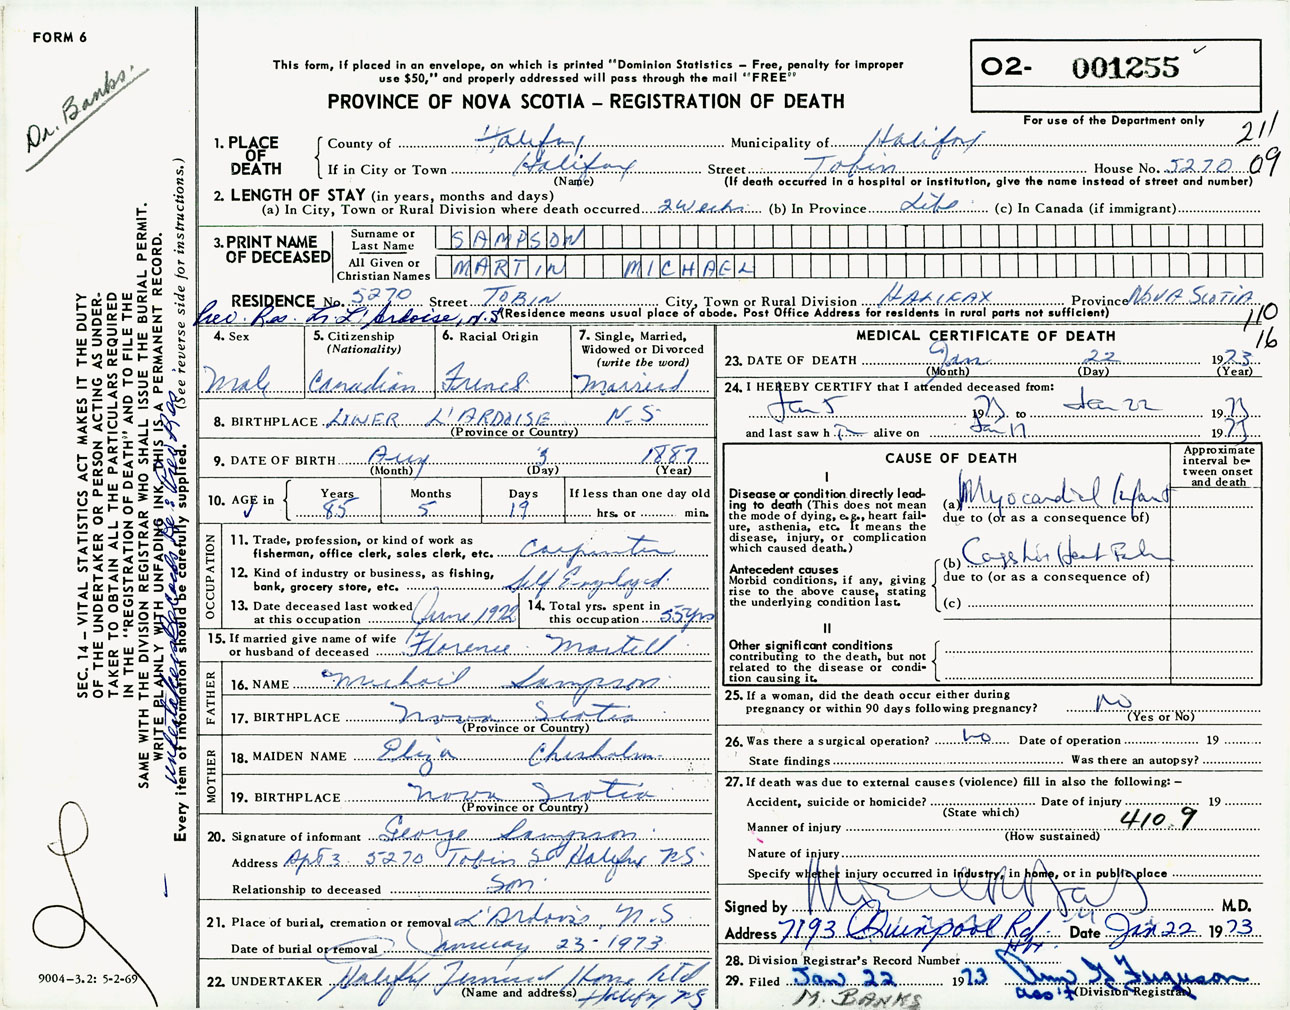 FORM 6
Dr. Banks.
This form, if placed in an envelope, on which is printed "Dominion Statistics – Free, penalty for improper
use $50," and properly addressed will pass through the mail "FREE"
PROVINCE OF NOVA SCOTIA – REGISTRATION OF DEATH
02- 001255
For use of the Department only
211
09
1. PLACE OF DEATH County of Halifax Municipality of Halifax
If in City or Town Halifax Street Tobin House No. 5270
(Name) (If death occurred in a hospital or institution, give the name instead of street and number)
2. LENGTH OF STAY (in years, months and days)
(a) In City, Town or Rural Division where death occurred 2 weeks (b) In Province Life (c) In Canada (if immigrant)
3. PRINT NAME OF DECEASED Surname or Last Name SAMPSON
All Given or Christian Names MARTIN MICHAEL
RESIDENCE No. 5270 Street TOBIN City, Town or Rural Division HALIFAX Province NOVA SCOTIA
Prev. Res. L. L'Ardoise, N.S. (Residence means usual place of abode. Post Office Address for residents in rural parts not sufficient)
110
16
4. Sex Male
5. Citizenship (Nationality) Canadian
6. Racial Origin French
7. Single, Married, Widowed or Divorced (write the word) Married
8. BIRTHPLACE LOWER L'ARDOISE N.S
(Province or Country)
9. DATE OF BIRTH Aug 3 1887
(Month) (Day) (Year)
10. AGE in Years 85 Months 5 Days 19 If less than one day old hrs. or min.
OCCUPATION
11. Trade, profession, or kind of work as fisherman, office clerk, sales clerk, etc. Carpenter
12. Kind of industry or business, as fishing, bank, grocery store, etc. Self Employed
13. Date deceased last worked at this occupation June 1972
14. Total yrs. spent in this occupation 55 yrs
15. If married give name of wife or husband of deceased Florence Martell
FATHER
16. NAME Michail Sampson
17. BIRTHPLACE Nova Scotia
(Province or Country)
MOTHER
18. MAIDEN NAME Eliza Chisholm
19. BIRTHPLACE Nova Scotia
(Province or Country)
20. Signature of informant George Sampson
Address Apt 3 5270 Tobin St Halifax NS.
Relationship to deceased Son
21. Place of burial, cremation or removal L'Ardoise, N.S
Date of burial or removal January 23-1973
22. UNDERTAKER Halifax Funeral Home Ltd
(Name and address) Halifax NS
MEDICAL CERTIFICATE OF DEATH
23. DATE OF DEATH Jan 22 1973
(Month) (Day) (Year)
24. I HEREBY CERTIFY that I attended deceased from:
Jan 5 1973 to Jan 22 1973
and last saw h im alive on Jan 17 1973
CAUSE OF DEATH
Approximate interval between onset and death
I
Disease or condition directly leading to death (This does not mean the mode of dying, e.g., heart failure, asthenia, etc. It means the disease, injury, or complication which caused death.)
(a) Myocardial Infarct
due to (or as a consequence of)
Antecedent causes
Morbid conditions, if any, giving rise to the above cause, stating the underlying condition last.
(b) Congestive Heart Failure
due to (or as a consequence of)
(c)
II
Other significant conditions
contributing to the death, but not related to the disease or condition causing it.
25. If a woman, did the death occur either during pregnancy or within 90 days following pregnancy? No
(Yes or No)
26. Was there a surgical operation? No Date of operation 19
State findings Was there an autopsy?
27. If death was due to external causes (violence) fill in also the following:–
Accident, suicide or homicide? Date of injury 19
(State which)
Manner of injury 410.9
(How sustained)
Nature of injury
Specify whether injury occurred in industry, in home, or in public place
Signed by M.D.
Address 7193 Quinpool Rd Hfx. Date Jan 22 1973
28. Division Registrar's Record Number
29. Filed Jan 22 1973 Ferguson
(Division Registrar)
M. BANKS
SEC. 14 – VITAL STATISTICS ACT MAKES IT THE DUTY
OF THE UNDERTAKER OR PERSON ACTING AS UNDER-
TAKER TO OBTAIN ALL THE PARTICULARS REQUIRED
IN THE "REGISTRATION OF DEATH" AND TO FILE THE
SAME WITH THE DIVISION REGISTRAR WHO SHALL ISSUE THE BURIAL PERMIT.
WRITE PLAINLY WITH UNFADING INK, THIS IS A PERMANENT RECORD.
Every item of information should be carefully supplied. (See reverse side for instructions.)
9004–3.2: 5-2-69